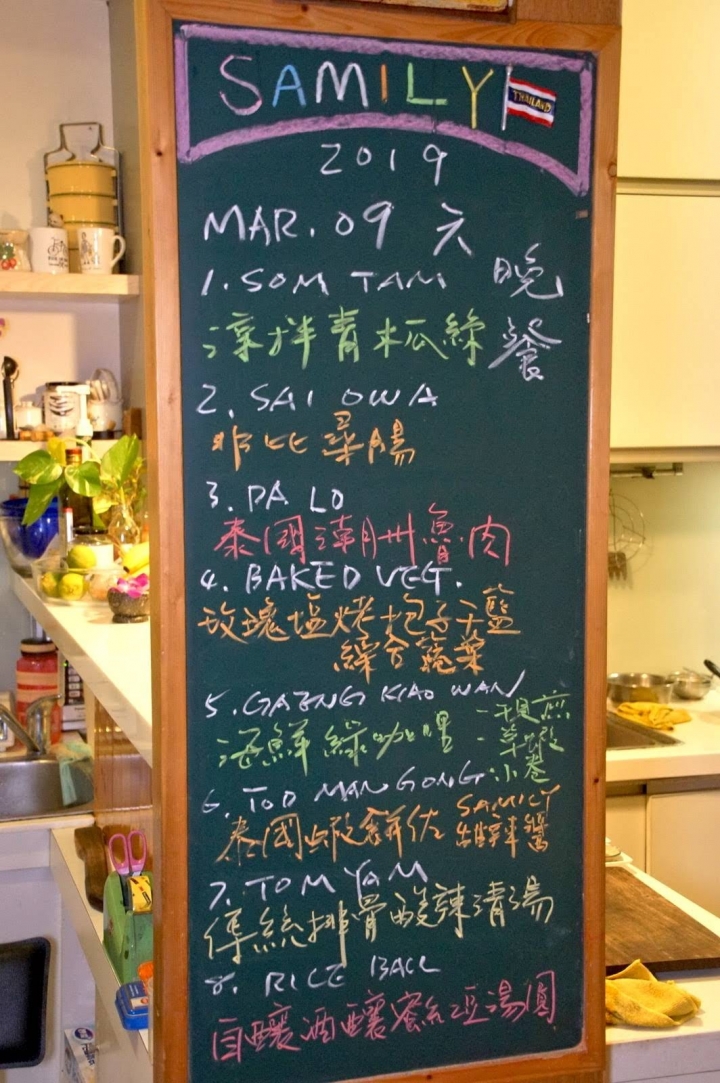 SAMILY
THAILAND
2019
MAR. 09 六
晚餐
1. SOM TAM
涼拌青木瓜絲
2. SAI OWA
3. PA LO
泰國潮州魯肉
4. BAKED VEG.
玫瑰塩烤抱子干籃
綜合蔬菜
5. GAENG KIAO WAN
海鮮綠咖哩
-草蝦
-小卷
6. TOD MAN GONG
泰國蝦餅佐 SAMILY
7. TOM YAM
傳統排骨酸辣清湯
8. RICE BALL
自釀酒釀蜜紅豆湯圓